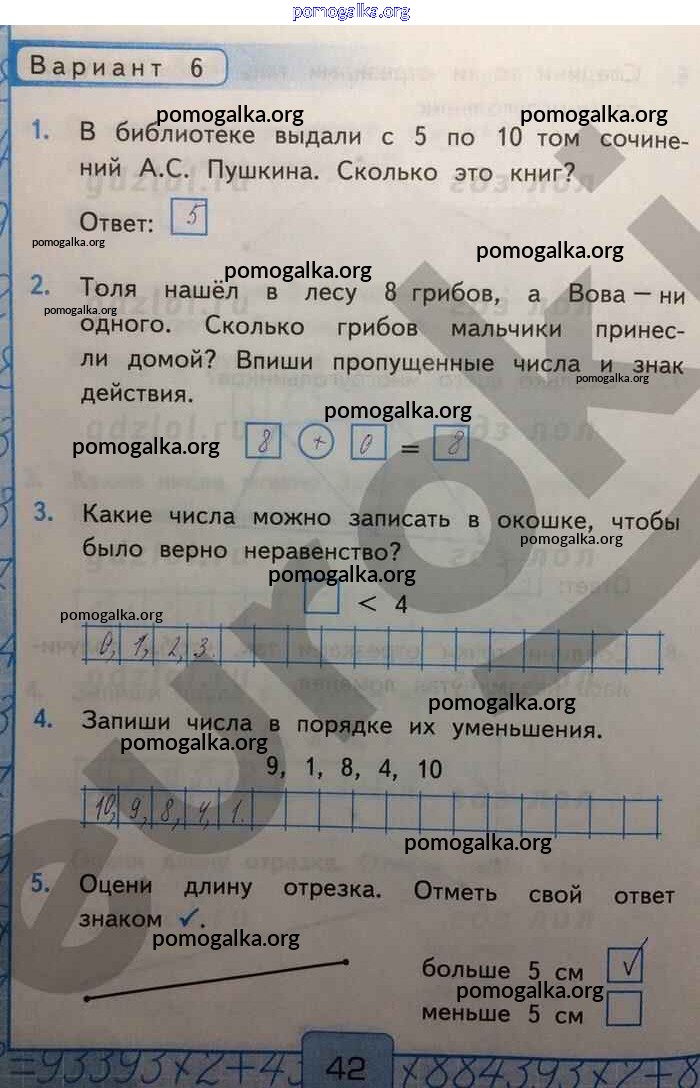 pomogalka.org
Вариант 6
pomogalka.org pomogalka.org
1. В библиотеке выдали с 5 по 10 том сочине-
ний А.С. Пушкина. Сколько это книг?
Ответ: 5
pomogalka.org
pomogalka.org
pomogalka.org
2. Толя нашёл в лесу 8 грибов, а Вова — ни
pomogalka.org
одного. Сколько грибов мальчики принес-
ли домой? Впиши пропущенные числа и знак
pomogalka.org
действия.
pomogalka.org
pomogalka.org 8 + 0 = 8
3. Какие числа можно записать в окошке, чтобы
pomogalka.org
было верно неравенство?
pomogalka.org
< 4
pomogalka.org
0, 1, 2, 3.
pomogalka.org
4. Запиши числа в порядке их уменьшения.
pomogalka.org
9, 1, 8, 4, 10
10, 9, 8, 4, 1.
pomogalka.org
5. Оцени длину отрезка. Отметь свой ответ
знаком ✓.
pomogalka.org
больше 5 см ✓
pomogalka.org
меньше 5 см
42
euroki